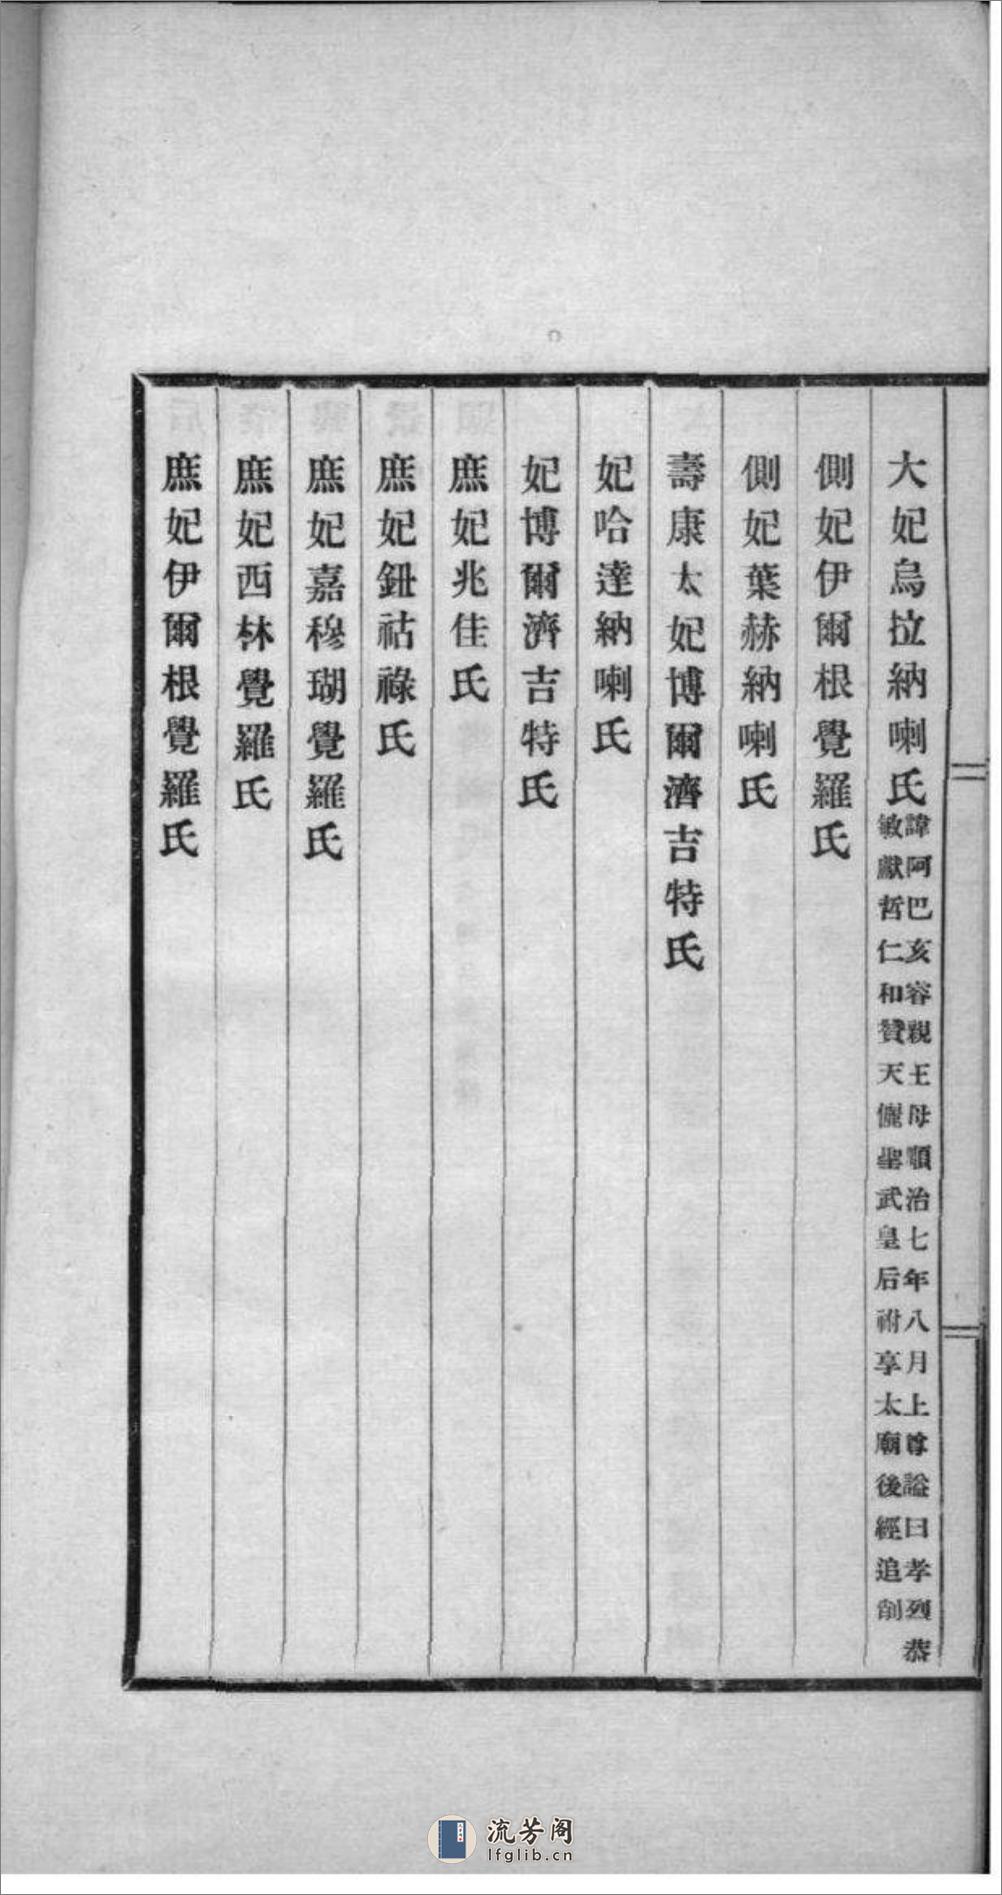 大妃烏拉納喇氏諱阿巴亥睿親王母順治七年八月上尊謚曰孝烈恭
敏獻哲仁和贊天儷聖武皇后祔享太廟後經追削
側妃伊爾根覺羅氏
側妃葉赫納喇氏
壽康太妃博爾濟吉特氏
妃哈達納喇氏
妃博爾濟吉特氏
庶妃兆佳氏
庶妃鈕祜祿氏
庶妃嘉穆瑚覺羅氏
庶妃西林覺羅氏
庶妃伊爾根覺羅氏
流芳阁
lfglib.cn